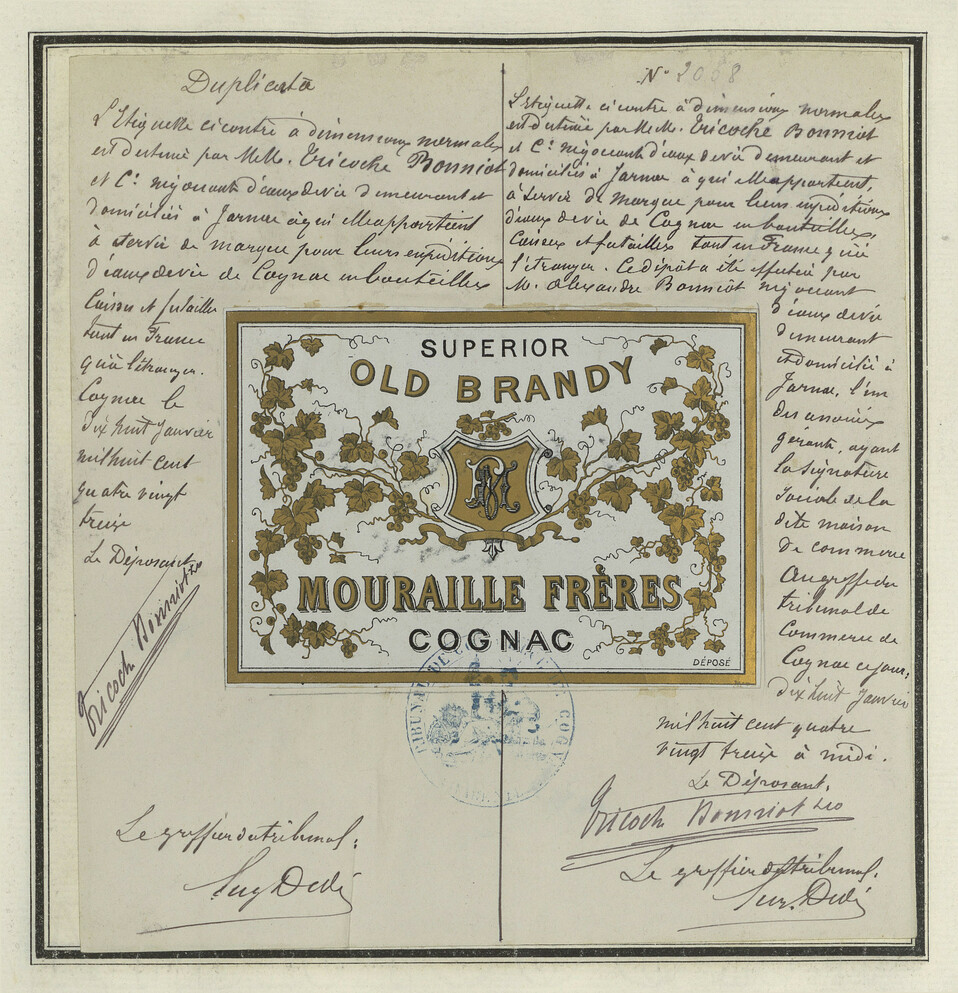 Duplicata
L'Etiquette ci contre à dimensions normales
est destinée par M.M. Tricoche Bonniot
et Cie négociants d'eaux de vie demeurant et
domiciliés à Jarnac à qui elle appartient
à servir de marque pour leurs expéditions
d'eaux de vie de Cognac en bouteilles
Caisses et futailles
tant en France
qu'à l'étranger.
Cognac le
dix huit Janvier
mil huit cent
quatre vingt
treize
Le Déposant
Tricoche Bonniot & Co
Le greffier du tribunal,
N° 2008
L'Etiquette ci contre à dimensions normales
est destinée par M.M. Tricoche Bonniot
et Cie négociants d'eaux de vie demeurant et
domiciliés à Jarnac à qui elle appartient,
à servir de marque pour leurs expéditions
d'eaux de vie de Cognac en bouteilles,
Caisses et futailles tant en France qu'à
l'étranger. Ce dépôt a été effectué par
M. Alexandre Bonniot négociant
d'eaux de vie
demeurant
et domicilié à
Jarnac, l'un
des associés
gérants, ayant
la signature
sociale de la
dite maison
de commerce
Au greffe du
tribunal de
Commerce de
Cognac ce jour,
dix huit Janvier
mil huit cent quatre
vingt treize à midi.
Le Déposant,
Tricoche Bonniot & Co
Le greffier du tribunal,
SUPERIOR
OLD BRANDY
MOURAILLE FRÈRES
COGNAC
DÉPOSÉ